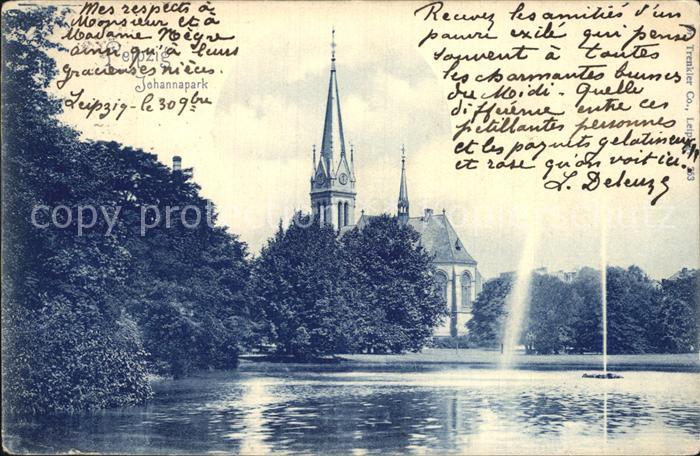 Mes respects à
Monsieur et à
Madame Nègre
ainsi qu'à leurs
gracieuses nièces.
Leipzig, le 30 9bre
Leipzig
Johannapark
Recevez les amitiés d'un
pauvre exilé qui pense
souvent à toutes
les charmantes brunes
du Midi. Quelle
différence entre ces
pétillantes personnes
et les paquets gélatineux
et rose qu'on voit ici. !!
L. Deleuze
Trenkler Co., Leipzig
copy protection by copyright samlerschutz